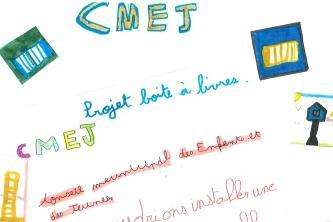 CMEJ
Projet boîte à livres.
CMEJ
Conseil municipal des Enfants et
des Jeunes
udrions installer une